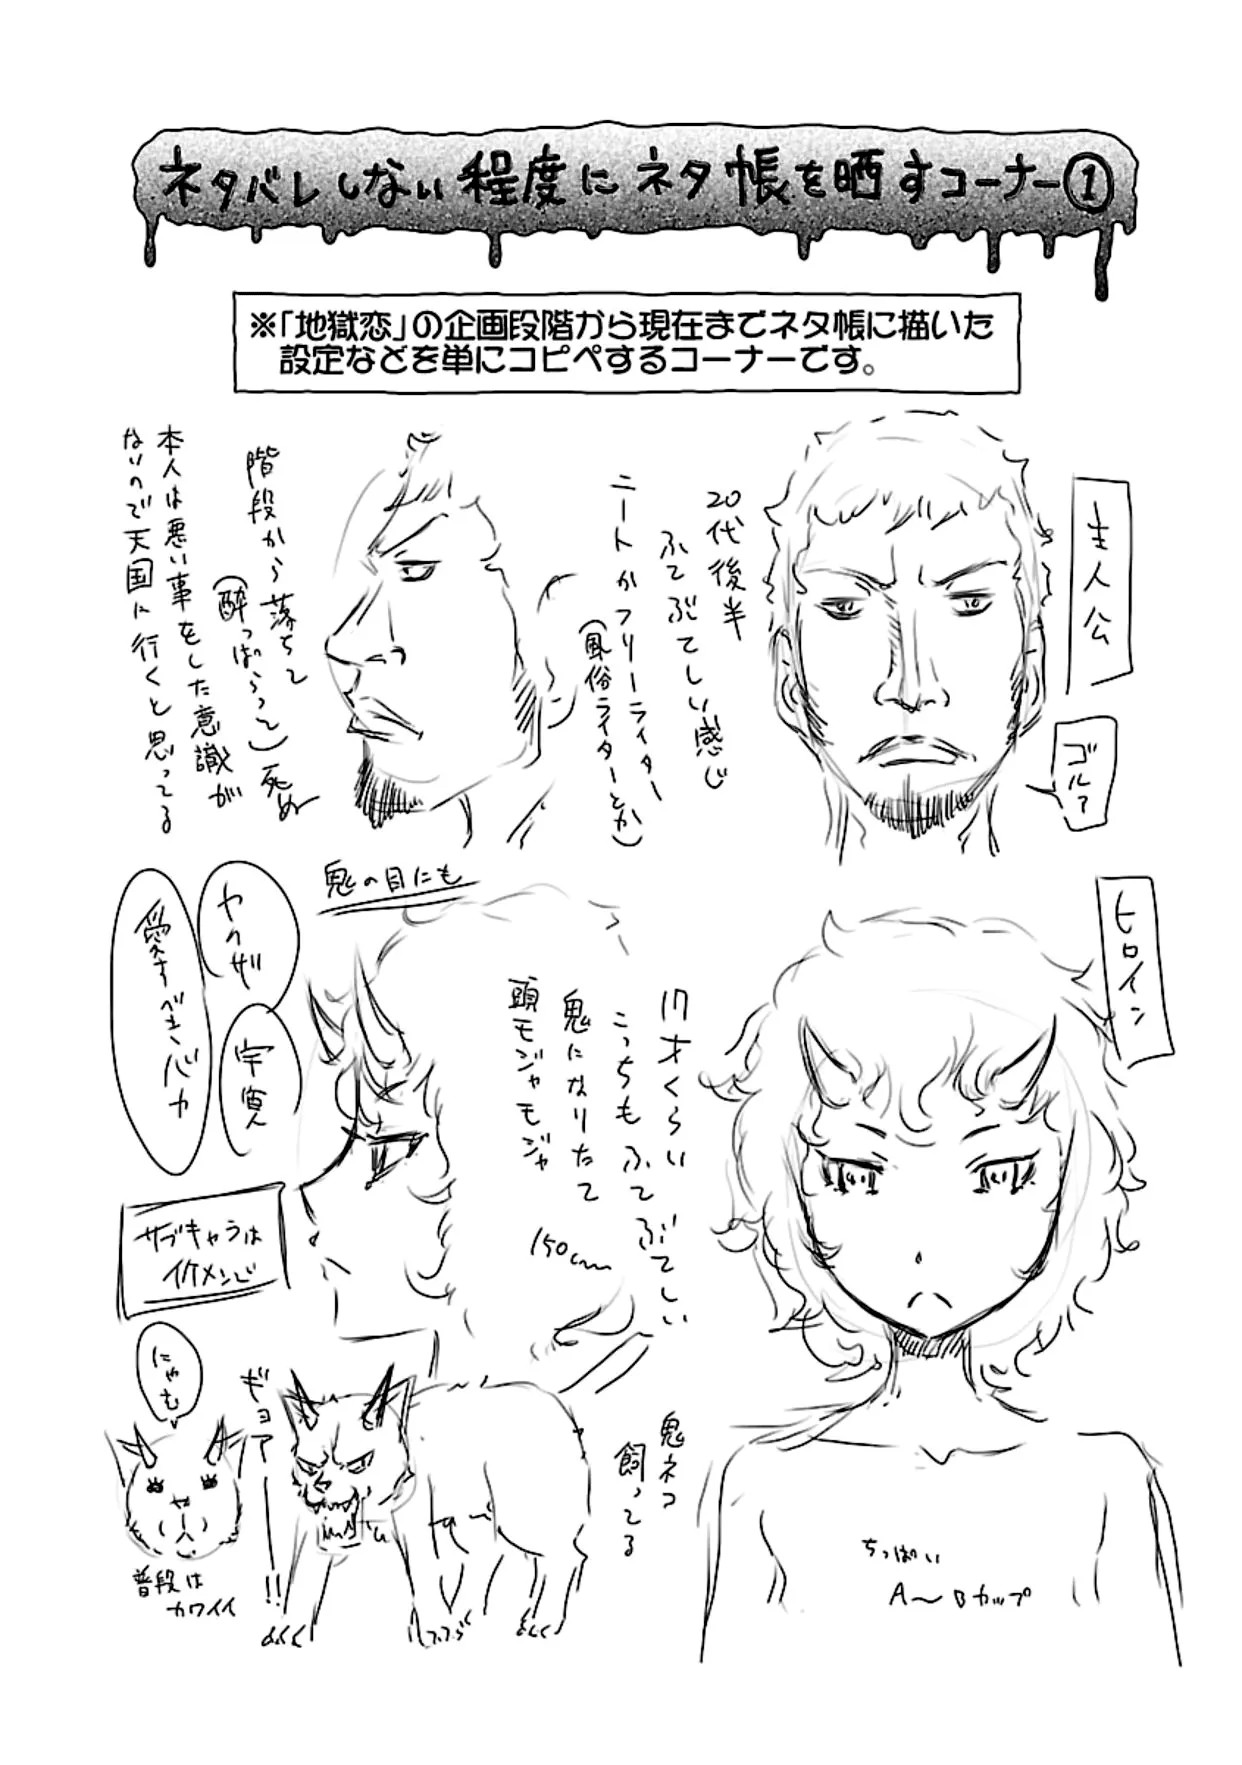 ネタバレしない程度にネタ帳を晒すコーナー①
※「地獄恋」の企画段階から現在までネタ帳に描いた
設定などを単にコピペするコーナーです。
主人公
ゴルア
20代後半
ふてぶてしい感じ
ニートかフリーライター
(風俗ライターとか)
階段から落ちて
(酔っぱらって)死ぬ
本人は悪い事をした意識が
ないので天国に行くと思ってる
ヒロイン
17才くらい
こっちもふてぶてしい
鬼になりたて
頭モジャモジャ
150cm
鬼の目にも
ヤクザ
愛すべきバカ
サブキャラは
イケメンで
鬼ネコ
飼ってる
ギョアー!!
にゃむ
普段は
カワイイ
ちっぱい
A～Bカップ